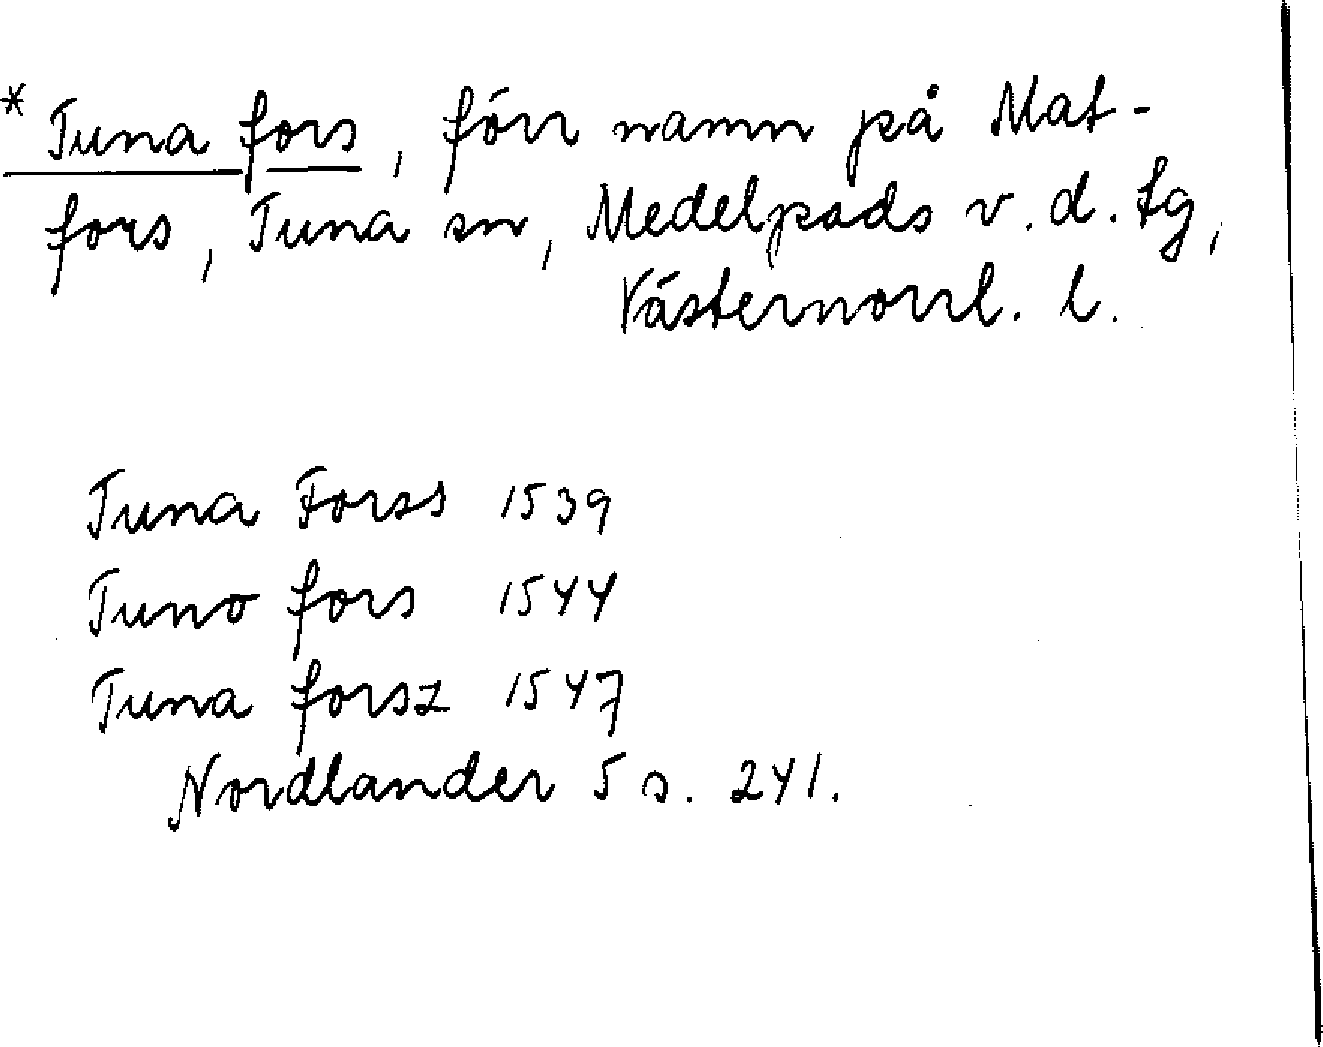 * Tuna fors, förr namn på Mat-
fors, Tuna sn, Medelpads v. d. tg,
Västernorrl. l.
Tuna Forss 1539
Tuno fors 1544
Tuna forsz 1547
Nordlander 5 s. 241.